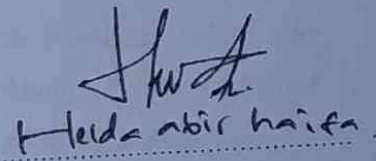 Heida abir haifa